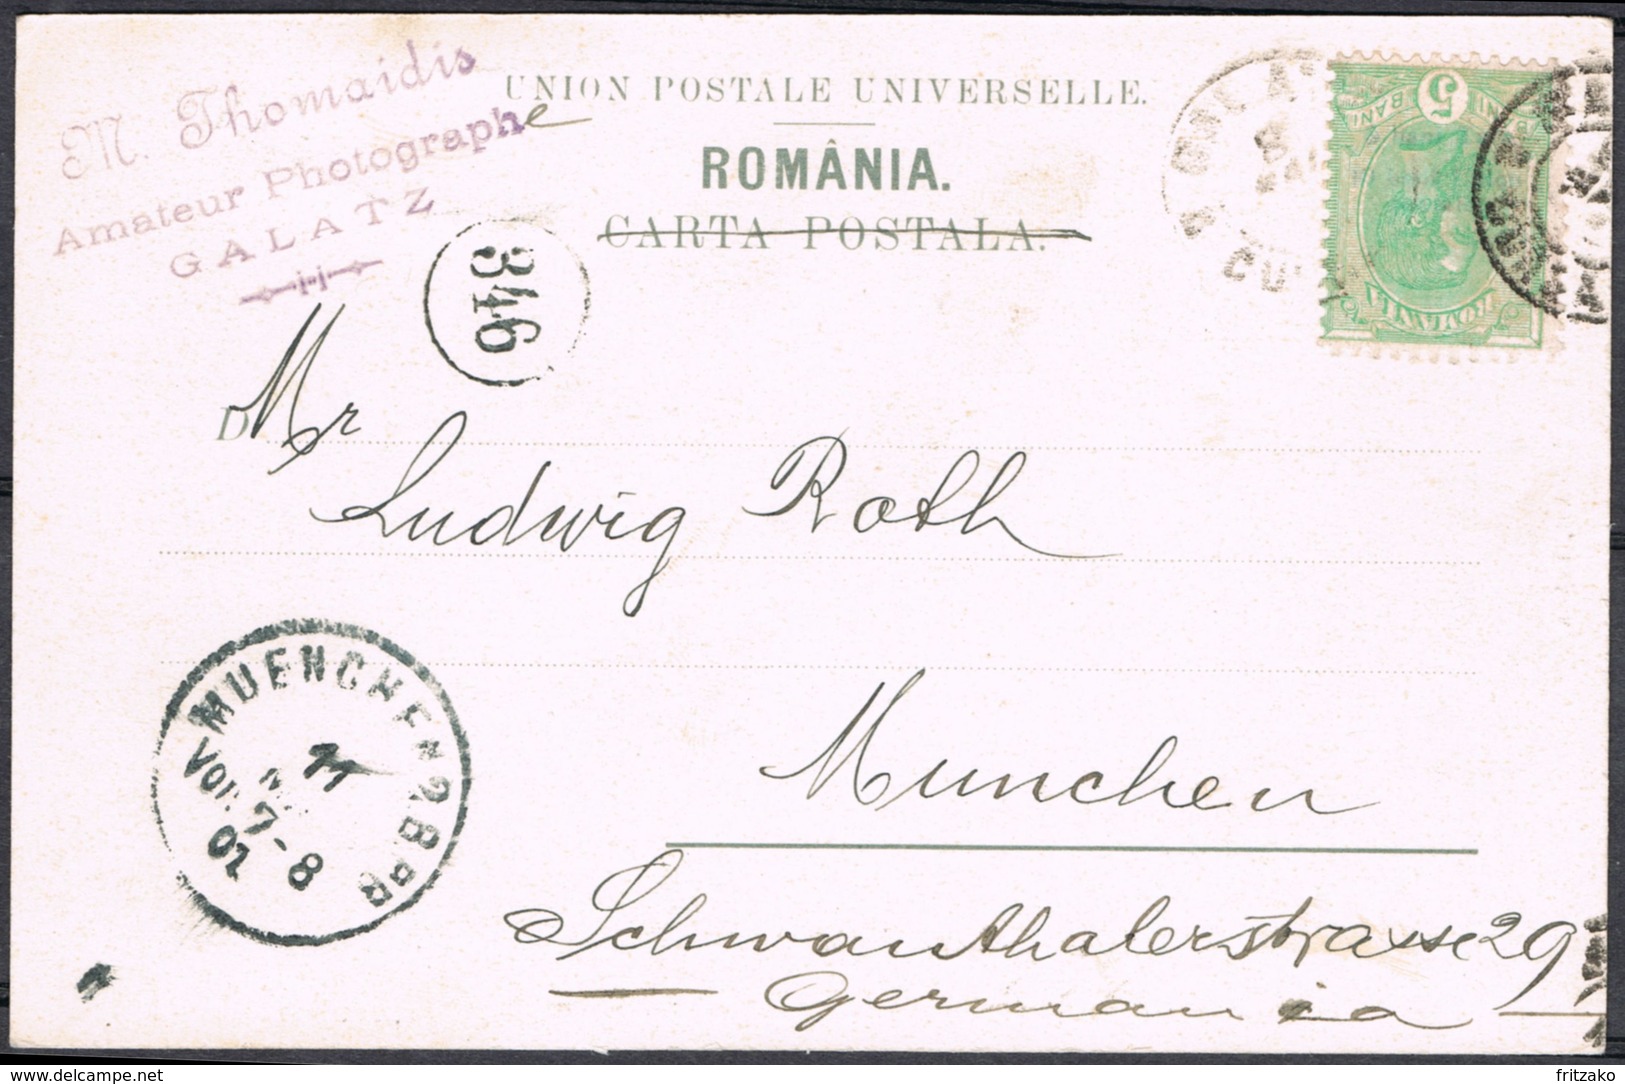 M. Thomaidis
Amateur Photographe
GALATZ
UNION POSTALE UNIVERSELLE.
ROMÂNIA.
CARTA POSTALA.
346
5
BANI
ROMANIA
D
Mr
Ludwig Roth
Munchen
Schwanthalerstrasse 29
Germania
MUENCHEN 2.B.PB
11
Vor. 7-8
02
delcampe.net
fritzako